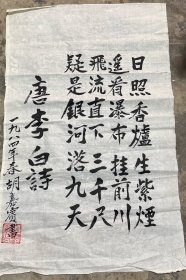 日照香爐生紫煙
遥看瀑布挂前川
飛流直下三千尺
疑是銀河落九天
唐李白詩
一九八四年春胡嘉賓書